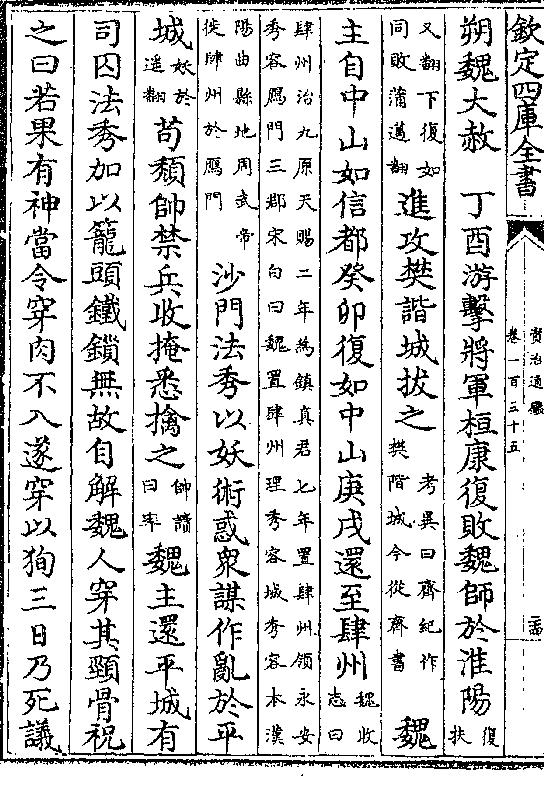 欽定四庫全書
資治通鑑
卷一百三十五
朔魏大赦 丁酉游擊將軍桓康復敗魏師於淮陽 復扶
又翻下復如
同敗蒲邁翻
進攻樊諧城拔之
考異曰齊紀作
樊階城今從齊書
魏
主自中山如信都癸卯復如中山庚戌還至肆州
魏收
志曰
肆州治九原天賜二年為鎮真君七年置肆州領永安
秀容鴈門三郡宋白曰魏置肆州理秀容城秀容本漢
陽曲縣地周武帝
徙肆州於鴈門
沙門法秀以妖術惑衆謀作亂於平
城
妖於
遥翻
苟頹帥禁兵收掩悉擒之
帥讀
曰率
魏主還平城有
司囚法秀加以籠頭鐵鎖無故自解魏人穿其頸骨祝
之曰若果有神當令穿肉不入遂穿以狥三日乃死議